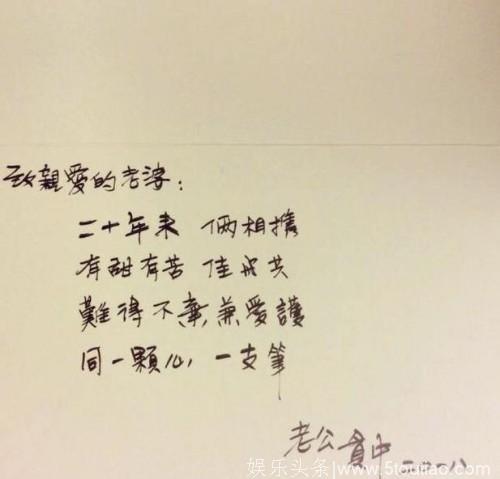 致親愛的老婆：
二十年來 倆相攜
有甜有苦 佳 共
難得不棄,兼愛護
同一顆心, 一支筆
老公
娱乐头条|www.5toutiao.com